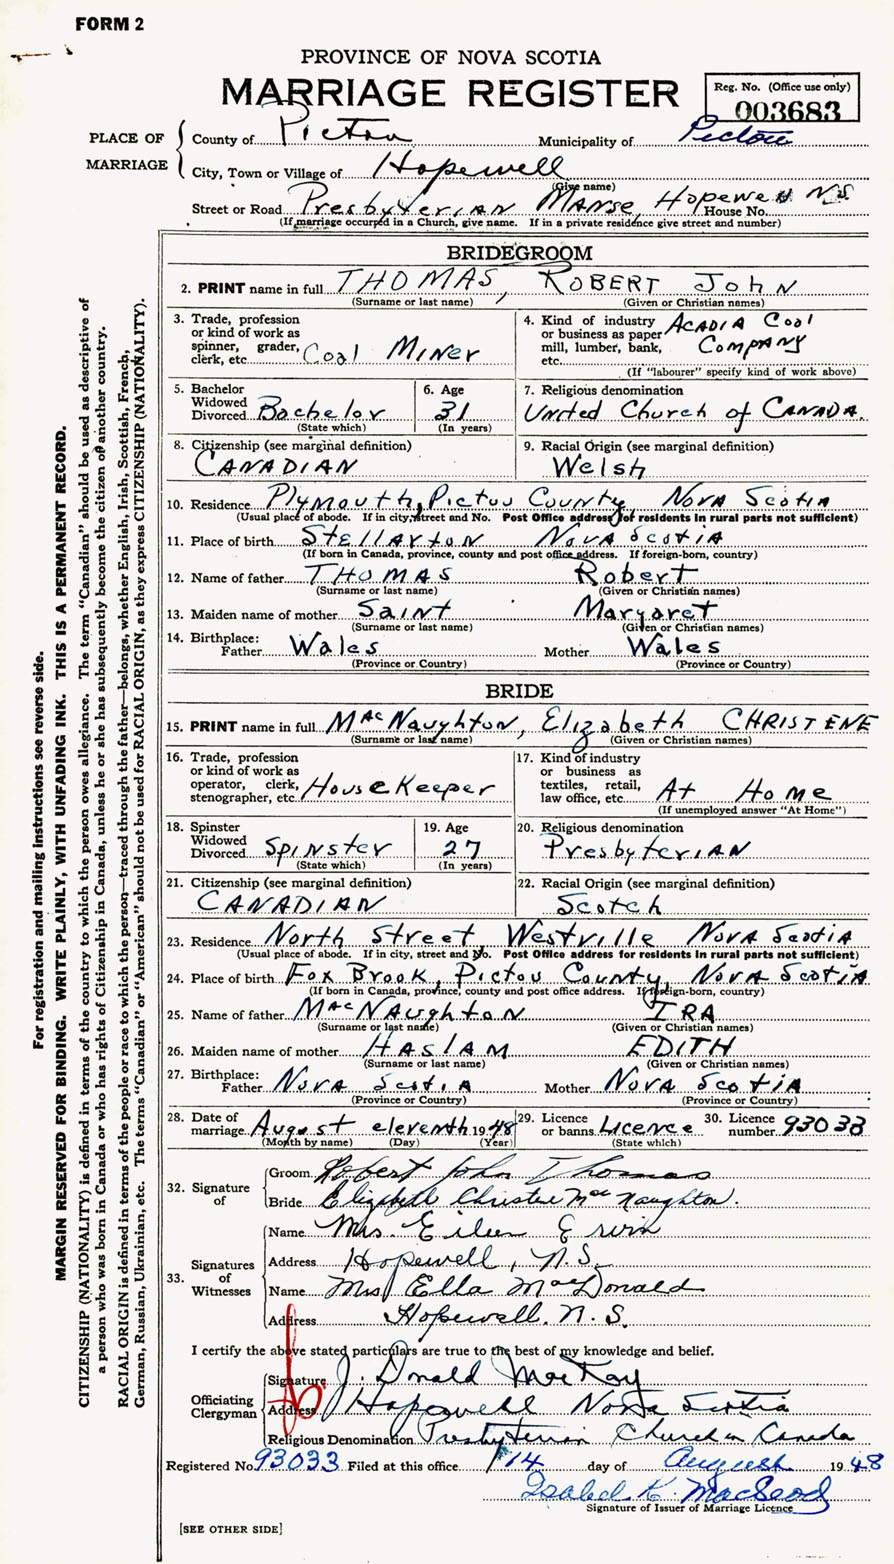 FORM 2
PROVINCE OF NOVA SCOTIA
MARRIAGE REGISTER
Reg. No. (Office use only)
003683
PLACE OF MARRIAGE
County of Pictou Municipality of Pictou
City, Town or Village of Hopewell
(Give name)
Street or Road Presbyterian Manse, Hopewell N.S. House No.
(If marriage occurred in a Church, give name. If in a private residence give street and number)
BRIDEGROOM
2. PRINT name in full THOMAS, ROBERT JOHN
(Surname or last name) (Given or Christian names)
3. Trade, profession or kind of work as spinner, grader, clerk, etc. Coal Miner
4. Kind of industry or business as paper mill, lumber, bank, etc. ACADIA Coal Company
(If "labourer" specify kind of work above)
5. Bachelor Widowed Divorced Bachelor
(State which)
6. Age 31
(In years)
7. Religious denomination
United Church of CANADA.
8. Citizenship (see marginal definition)
CANADIAN
9. Racial Origin (see marginal definition)
Welsh
10. Residence Plymouth, Pictou County Nova Scotia
(Usual place of abode. If in city, street and No. Post Office address for residents in rural parts not sufficient)
11. Place of birth Stellarton Nova Scotia
(If born in Canada, province, county and post office address. If foreign-born, country)
12. Name of father THOMAS Robert
(Surname or last name) (Given or Christian names)
13. Maiden name of mother Saint Margaret
(Surname or last name) (Given or Christian names)
14. Birthplace: Father Wales Mother Wales
(Province or Country) (Province or Country)
BRIDE
15. PRINT name in full MacNaughton, Elizabeth CHRISTENE
(Surname or last name) (Given or Christian names)
16. Trade, profession or kind of work as operator, clerk, stenographer, etc. HouseKeeper
17. Kind of industry or business as textiles, retail, law office, etc. At Home
(If unemployed answer "At Home")
18. Spinster Widowed Divorced Spinster
(State which)
19. Age 27
(In years)
20. Religious denomination
Presbyterian
21. Citizenship (see marginal definition)
CANADIAN
22. Racial Origin (see marginal definition)
Scotch
23. Residence North Street Westville Nova Scotia
(Usual place of abode. If in city, street and No. Post Office address for residents in rural parts not sufficient)
24. Place of birth Fox Brook, Pictou County, Nova Scotia
(If born in Canada, province, county and post office address. If foreign-born, country)
25. Name of father MacNaughton IRA
(Surname or last name) (Given or Christian names)
26. Maiden name of mother HASLAM EDITH
(Surname or last name) (Given or Christian names)
27. Birthplace: Father Nova Scotia Mother Nova Scotia
(Province or Country) (Province or Country)
28. Date of marriage August eleventh 1948
(Month by name) (Day) (Year)
29. Licence or banns Licence
(State which)
30. Licence number 93033
32. Signature of
Groom Robert John Thomas
Bride Elizabeth Christene MacNaughton.
33. Signatures of Witnesses
Name Mrs. Eileen Erwin
Address Hopewell, N.S.
Name Mrs Ella MacDonald
Address Hopewell. N.S.
I certify the above stated particulars are true to the best of my knowledge and belief.
Officiating Clergyman
Signature J. Donald MacKay
Address Hopewell Nova Scotia
Religious Denomination Presbyterian Church in Canada
Registered No. 93033 Filed at this office 14 day of August 1948
Isabel K. MacLeod
Signature of Issuer of Marriage Licence
[SEE OTHER SIDE]
For registration and mailing instructions see reverse side.
MARGIN RESERVED FOR BINDING. WRITE PLAINLY, WITH UNFADING INK. THIS IS A PERMANENT RECORD.
CITIZENSHIP (NATIONALITY) is defined in terms of the country to which the person owes allegiance. The term "Canadian" should be used as descriptive of
a person who was born in Canada or who has rights of Citizenship in Canada, unless he or she has subsequently become the citizen of another country.
RACIAL ORIGIN is defined in terms of the people or race to which the person—traced through the father—belongs, whether English, Irish, Scottish, French,
German, Russian, Ukrainian, etc. The terms "Canadian" or "American" should not be used for RACIAL ORIGIN, as they express CITIZENSHIP (NATIONALITY).